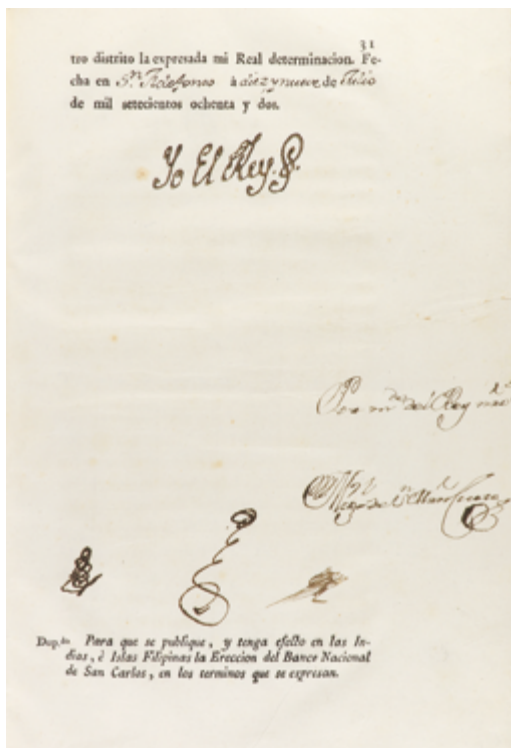 31
tro distrito la expresada mi Real determinacion. Fe-
cha en Sn. Ildefonso à diez y nueve de Julio
de mil setecientos ochenta y dos.
Yo El Rey.
Por mdo. del Rey
Dup.do Para que se publique, y tenga efecto en las In-
dias, è Islas Filipinas la Ereccion del Banco Nacional
de San Carlos, en los terminos que se expresan.